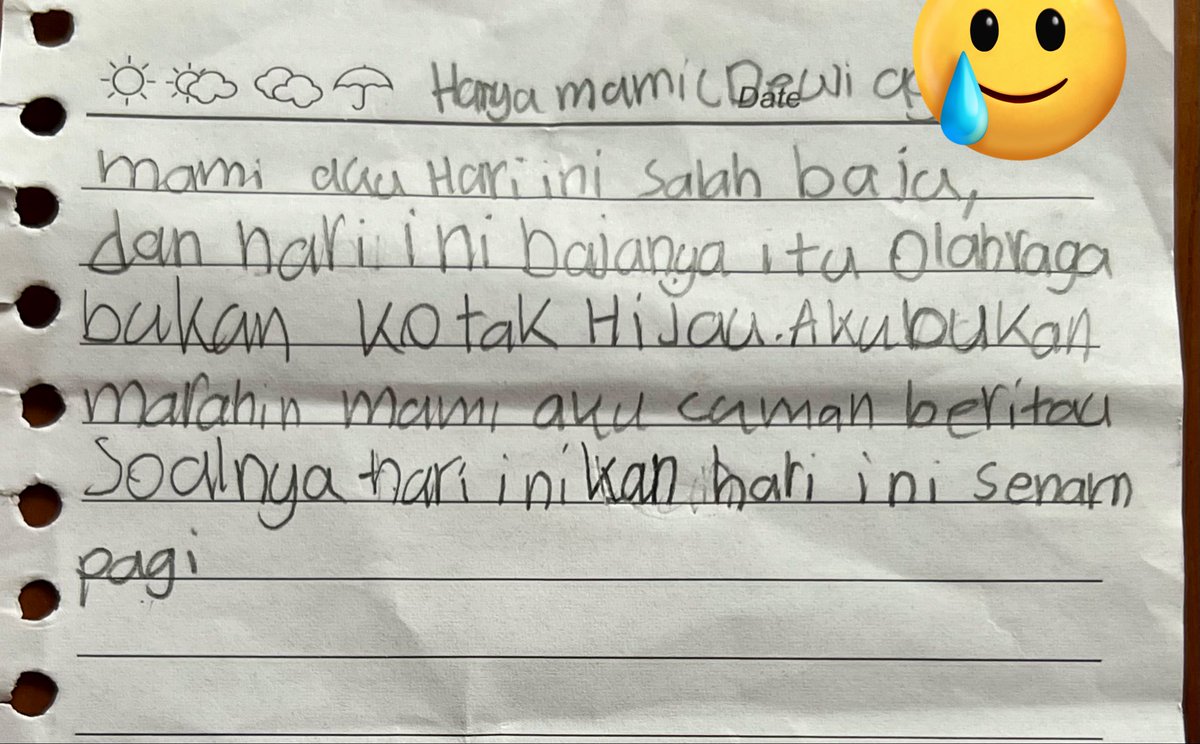 Hanya mami (Dewi
Date
mami aku Hari ini Salah baju,
dan hari ini bajunya itu Olahraga
bukan Kotak Hijau. Aku bukan
marahin mami aku cuman beritau
Soalnya hari ini kan hari ini senam
pagi